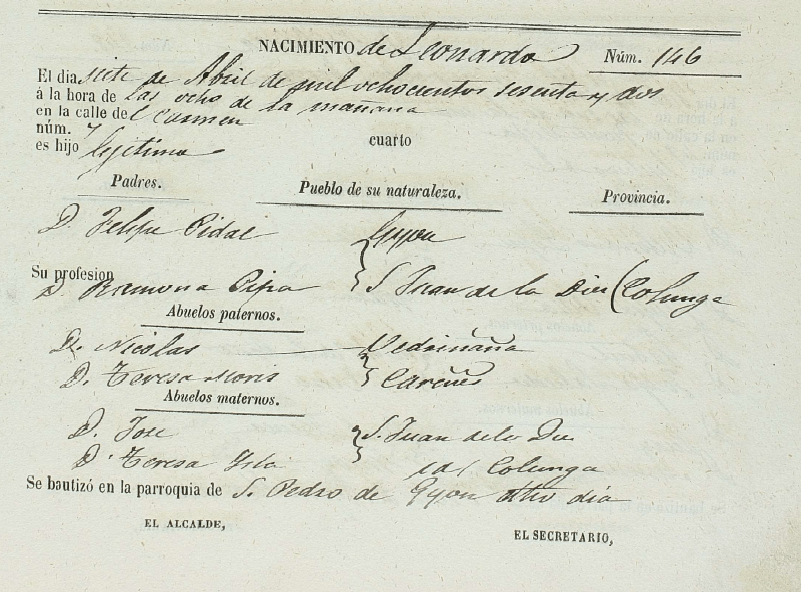 NACIMIENTO de Leonardo Núm. 146
El dia siete de Abril de mil ochocientos sesenta y dos
á la hora de las ocho de la mañana
en la calle del Carmen
núm. 7 cuarto
es hijo legitimo
Padres. Pueblo de su naturaleza. Provincia.
D. Felipe Vidal Gyon
Su profesion
D. Ramona Pipa S. Juan de la Duz (Colunga
Abuelos paternos.
D. Nicolas Vedriñana
D. Teresa Moris Careñes
Abuelos maternos.
D. Jose S. Juan de la Du
D. Teresa Isla id ( Colunga
Se bautizó en la parroquia de S. Pedro de Gyon dho dia
EL ALCALDE, EL SECRETARIO,